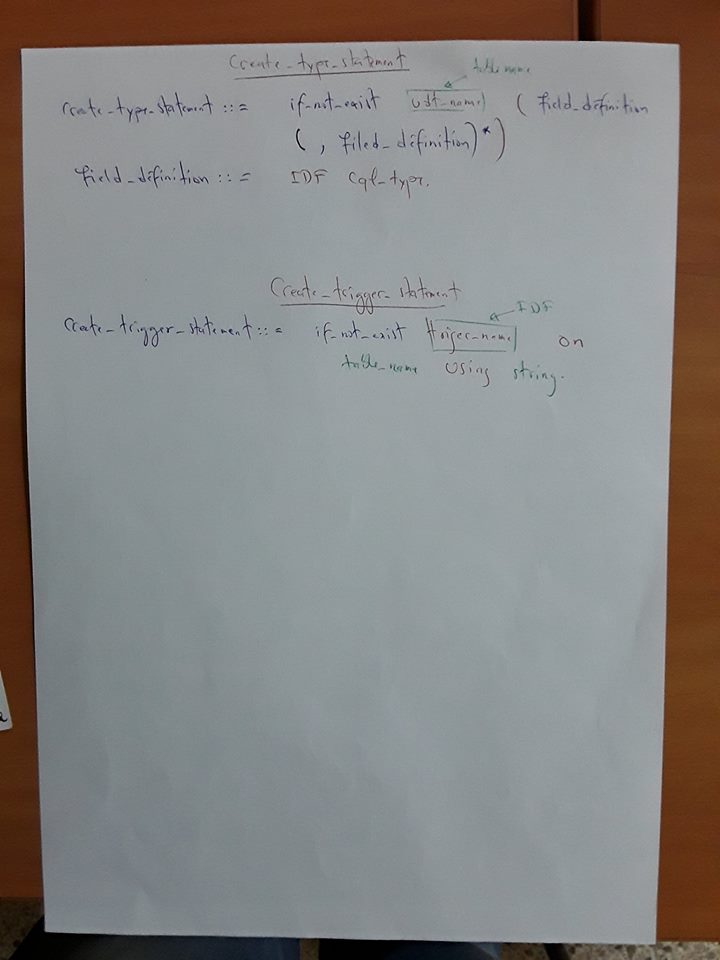 Create_type_statement
table name
Create_type_statement ::= if_not_exist udt_name ( field_definition
( , filed_definition)*)
field_definition ::= IDF cql_type.
Create_trigger_statement
IDF
Create_trigger_statement ::= if_not_exist triger_name on
table_name using string.